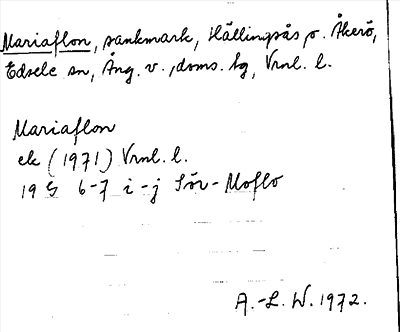 Mariaflon, sankmark, Hällingsås o. Åkerö,
Edsele sn, Ång. v., doms. hg, Vrnl. l.
Mariaflon
ek (1971) Vrnl. l.
19 G 6-7 i-j Sör-Moflo
A.-L. W. 1972.